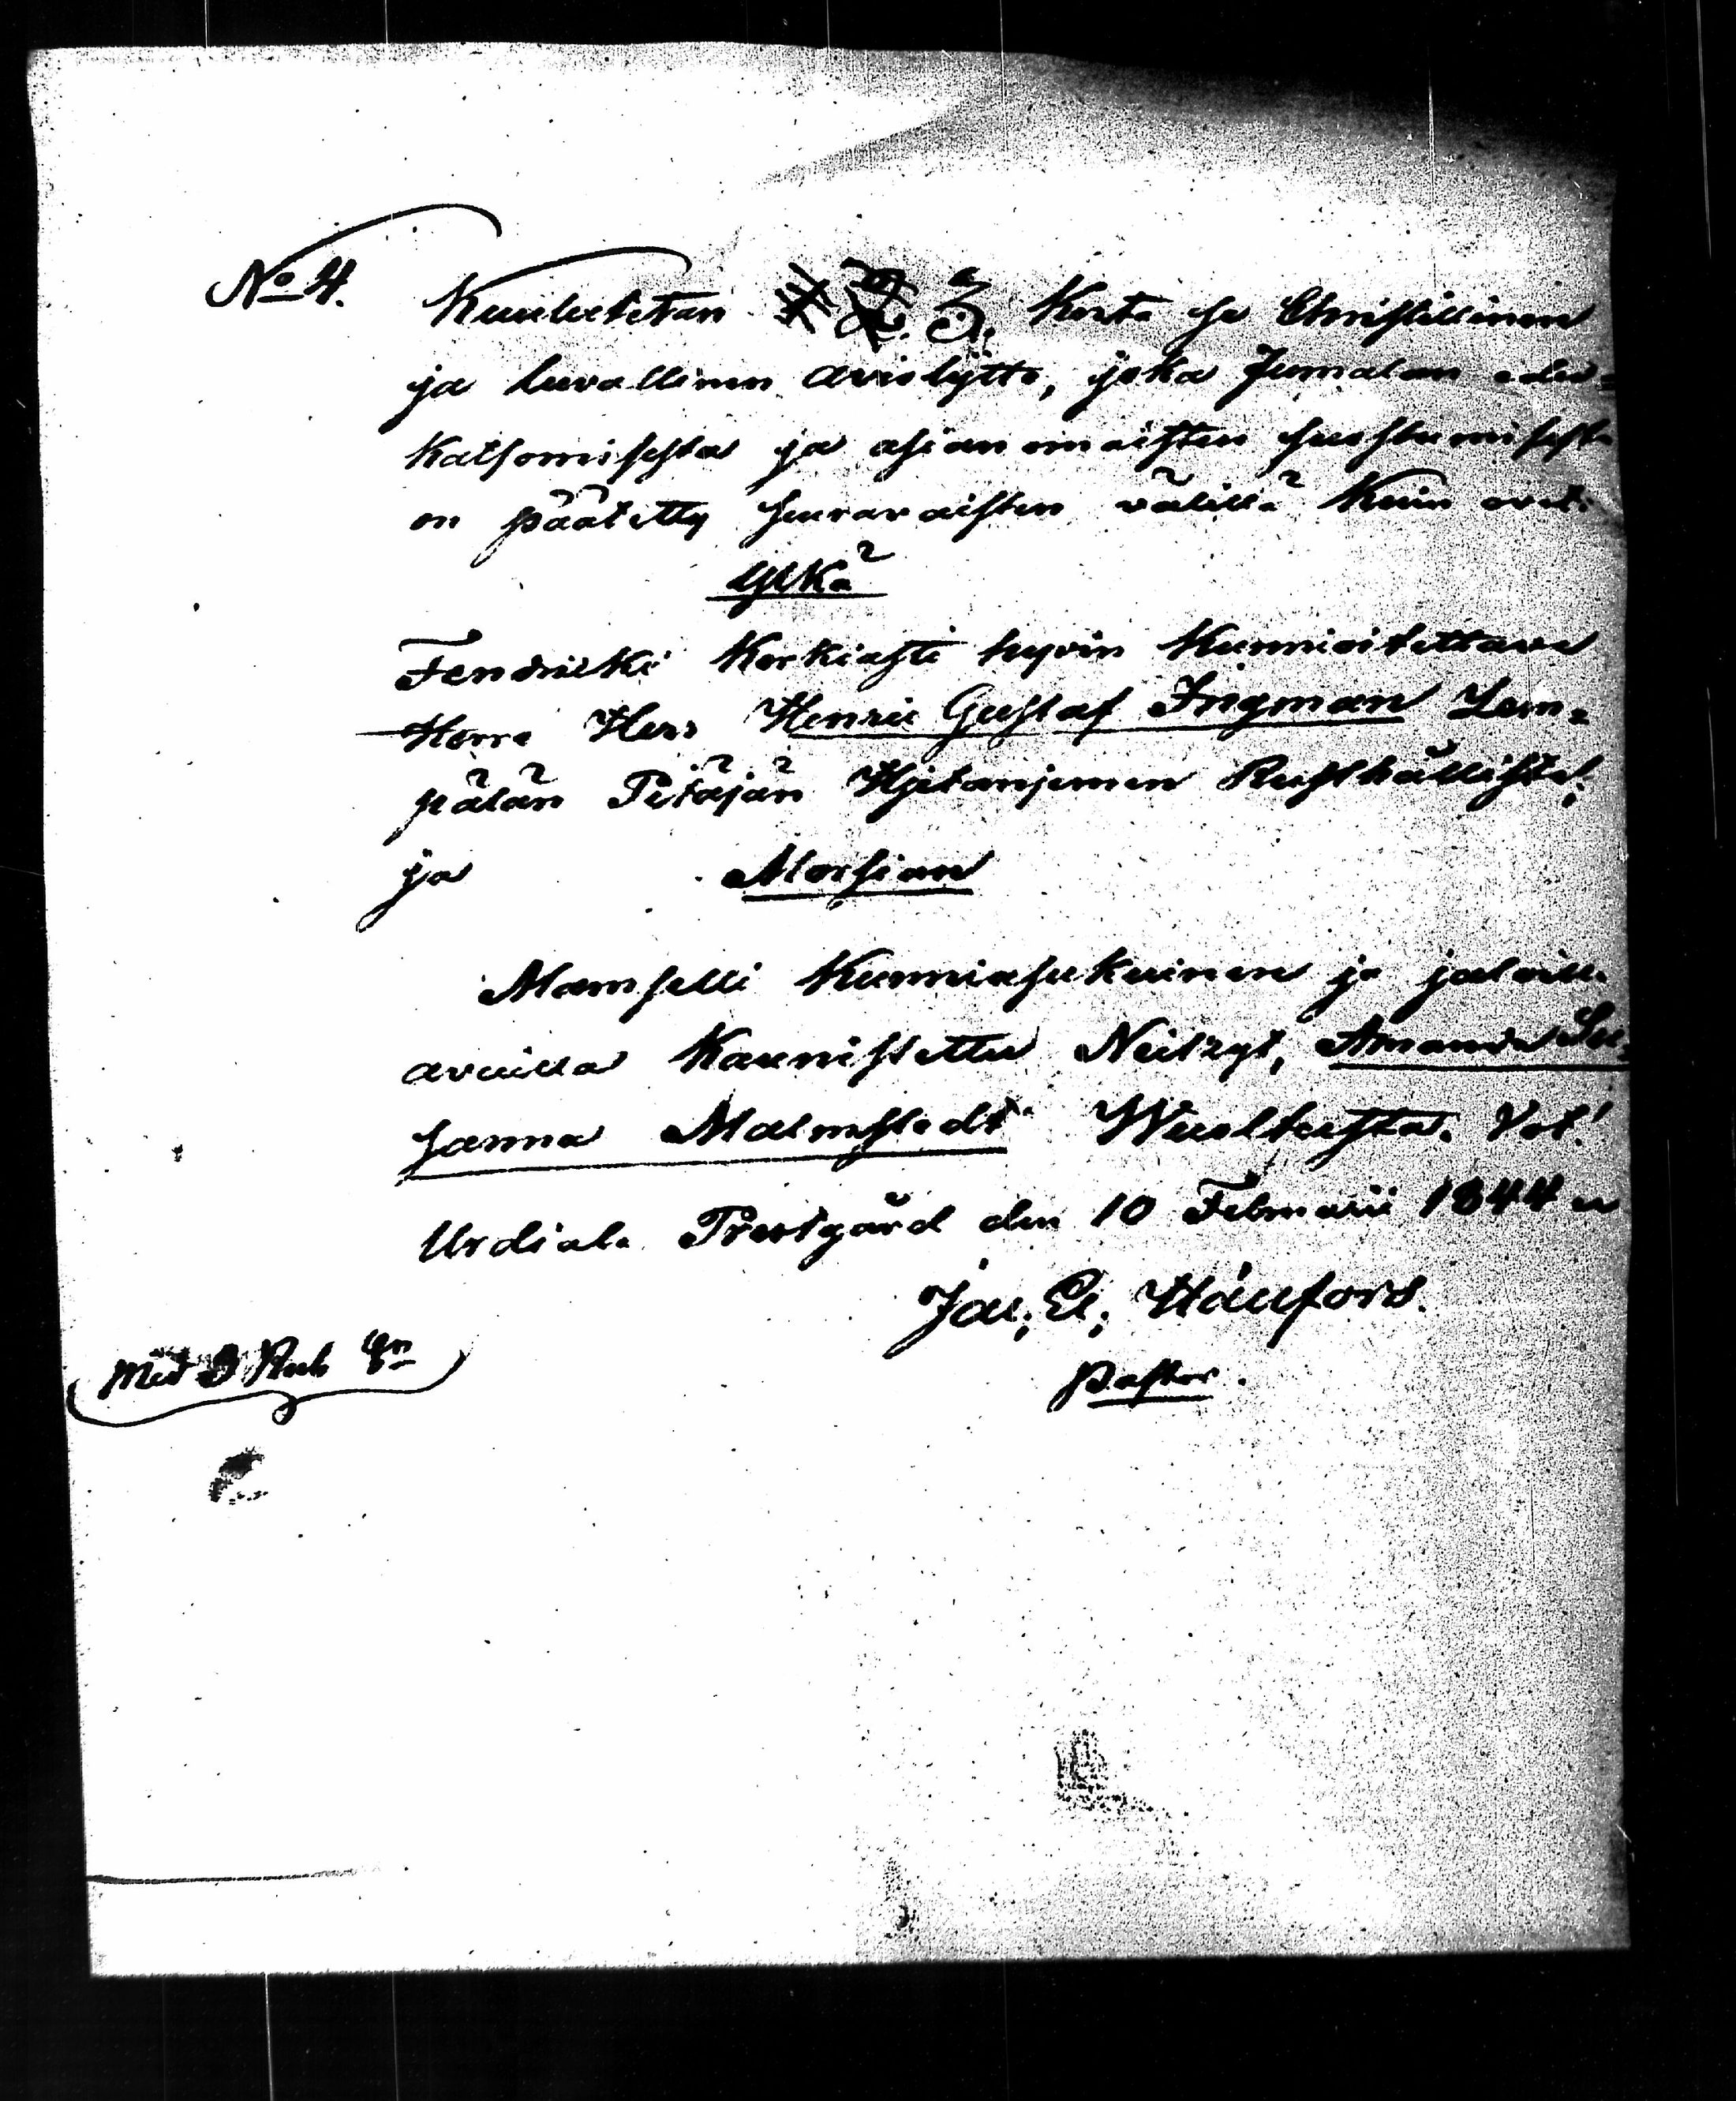 No 4. Kuulutetan 1. 2. 3. Kerta se Christillinen
ja luvallinen avioliytto, joka Jumalan edes=
katsomisesta ja asianomaisten suostumisesta
on päätetty seuravaisten välillä kuin ovat:
Ylkä
Fendrikki Korkiasti hyvin kunnioitettava
Herra Herr Henric Gustaf Ingman Lem=
pälän Pitäjän Hjetanjemen Rusthållista;
ja Morsian
Mamselli Kunniasukuinen ja jaloilla
avuilla Kaunistettu Neitzyt, Amanda Su=
sanna Malmstedt Wuoltusta. Vot!
Urdiala Prestgård den 10 Februarii 1844
Jac; El; Hånfors.
Pastor.
Med 3 Rub